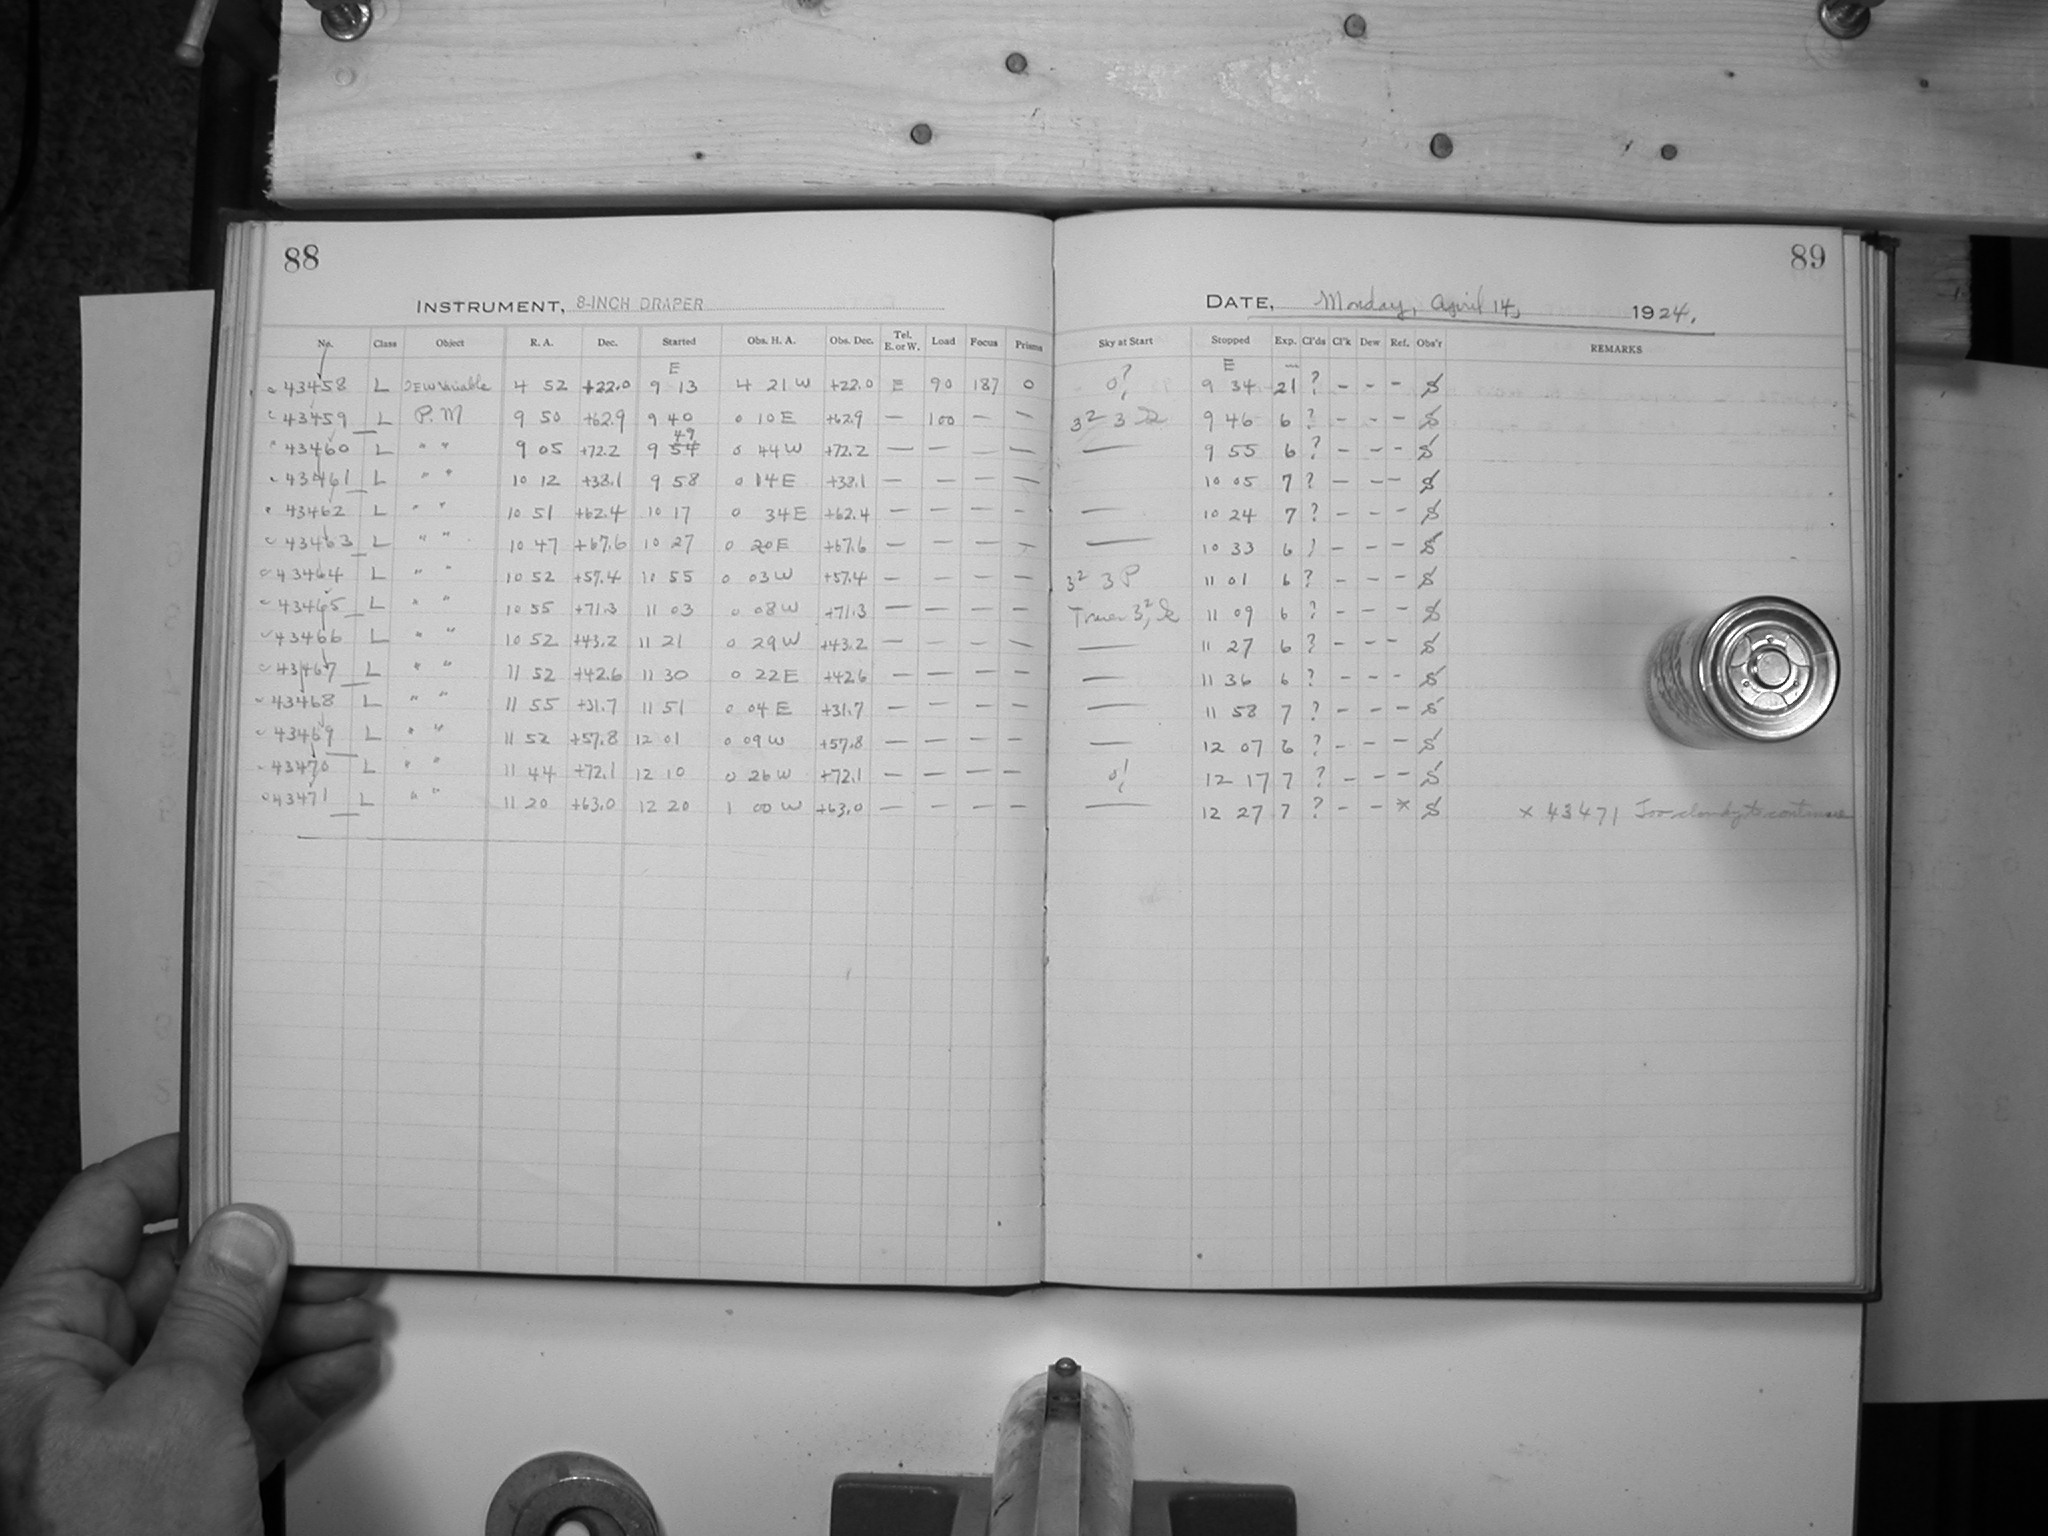 88
89
INSTRUMENT, 8-INCH DRAPER
DATE, Monday, April 14, 1924,
No. Class Object R. A. Dec. Started Obs. H. A. Obs. Dec. Tel. E. or W. Load Focus Prisms Sky at Start Stopped Exp. Cl'ds Cl'k Dew Ref. Obs'r REMARKS
E E m
43458 L Variable 4 52 +22.0 9 13 4 21 W +22.0 E 90 187 0 0? 9 34 21 ? - - - S
43459 L P. M 9 50 +62.9 9 40 0 10 E +62.9 — 100 — — 3² 3 9 46 6 ? - - - S
49
43460 L " " 9 05 +72.2 9 54 0 44 W +72.2 — — — — — 9 55 6 ? - - - S
43461 L " " 10 12 +38.1 9 58 0 14 E +38.1 — — — — 10 05 7 ? - - - S
43462 L " " 10 51 +62.4 10 17 0 34 E +62.4 — — — - — 10 24 7 ? - - - S
43463 L " " 10 47 +67.6 10 27 0 20 E +67.6 — — — — — 10 33 6 ? - - - S
43464 L " " 10 52 +57.4 10 55 0 03 W +57.4 — — — — 3² 3 P 11 01 6 ? - - - S
43465 L " " 10 55 +71.3 11 03 0 08 W +71.3 — — — — 3², 11 09 6 ? - - - S
43466 L " " 10 52 +43.2 11 21 0 29 W +43.2 — — — — — 11 27 6 ? - - - S
43467 L " " 11 52 +42.6 11 30 0 22 E +42.6 — — — — — 11 36 6 ? - - - S
43468 L " " 11 55 +31.7 11 51 0 04 E +31.7 — — — — — 11 58 7 ? - - - S
43469 L " " 11 52 +57.8 12 01 0 09 W +57.8 — — — — — 12 07 6 ? - - - S
43470 L " " 11 44 +72.1 12 10 0 26 W +72.1 — — — — 12 17 7 ? - - - S
43471 L " " 11 20 +63.0 12 20 1 00 W +63.0 — — — — — 12 27 7 ? - - × S × 43471 Too cloudy to continue